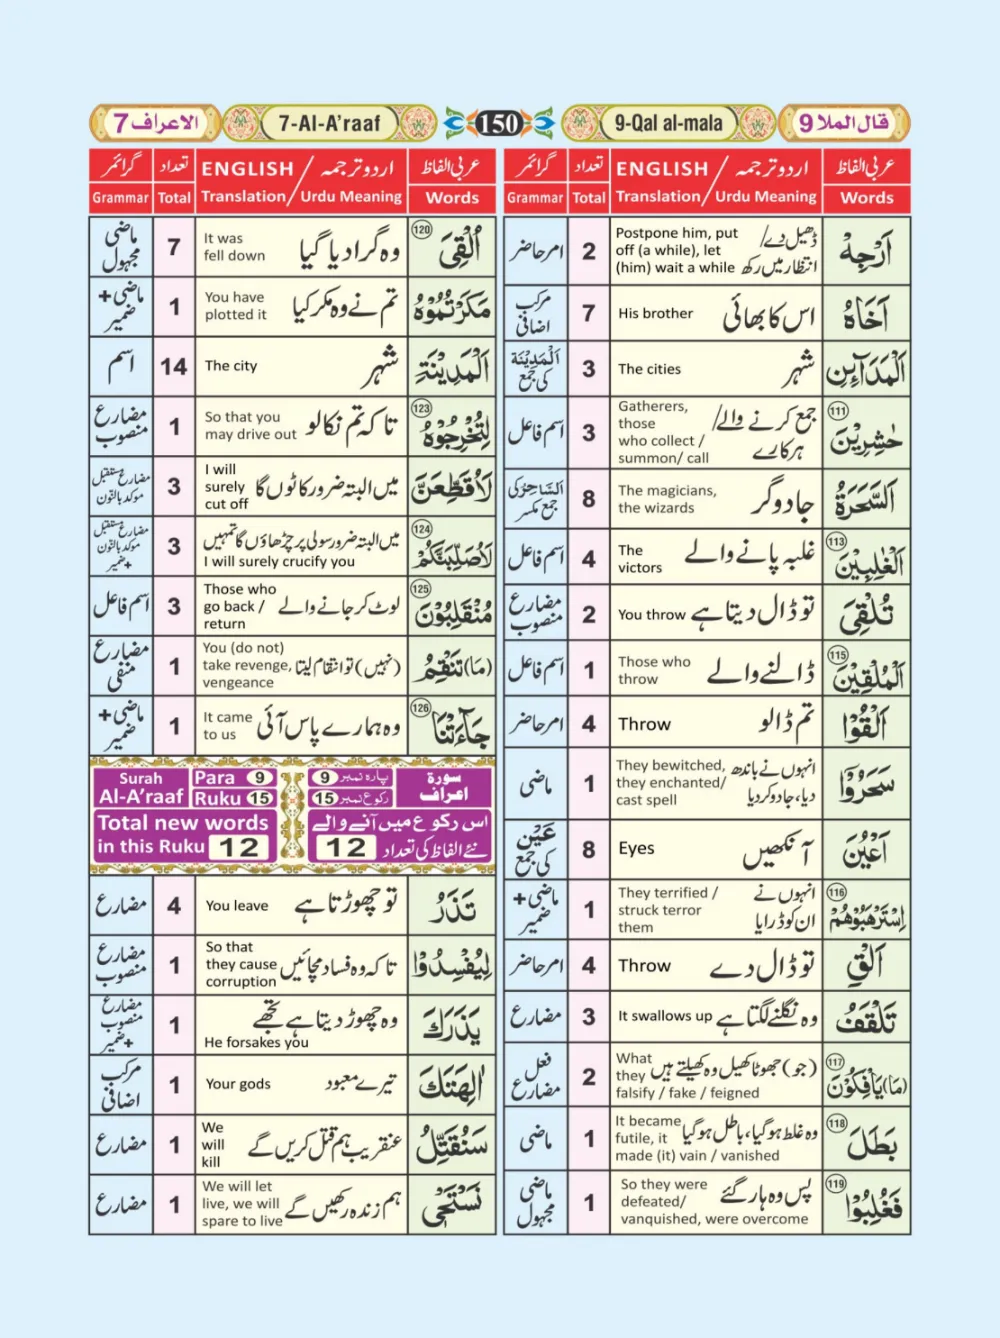 الاعراف 7
7-Al-A’raaf
150
9-Qal al-mala
قال الملا 9
عربی الفاظ
Words
ENGLISH / اردو ترجمہ
Translation / Urdu Meaning
تعداد
Total
گرائمر
Grammar
اَرْجِهْ
ڈھیل دے/
انتظار میں رکھ
Postpone him, put
off (a while), let
(him) wait a while
2
امر حاضر
اَخَاهُ
اس کا بھائی
His brother
7
مرکب
اضافی
اَلْمَدَآئِنِ
شہر
The cities
3
اَلْمَدِيْنَة
کی جمع
111
حٰشِرِيْنَ
جمع کرنے والے/
ہرکارے
Gatherers,
those
who collect /
summon/ call
3
اسم فاعل
اَلسَّحَرَةُ
جادوگر
The magicians,
the wizards
8
اَلسَّاحِرُ کی
جمع مکسر
113
اَلْغٰلِبِيْنَ
غلبہ پانے والے
The
victors
4
اسم فاعل
تُلْقِيَ
تو ڈال دیتا ہے
You throw
2
مضارع
منصوب
115
اَلْمُلْقِيْنَ
ڈالنے والے
Those who
throw
1
اسم فاعل
اَلْقُوْا
تم ڈالو
Throw
4
امر حاضر
سَحَرُوْا
انہوں نے باندھ
دیا، جادو کر دیا
They bewitched,
they enchanted/
cast spell
1
ماضی
اَعْيُنَ
آنکھیں
Eyes
8
عَيْن
کی جمع
116
اِسْتَرْهَبُوْهُمْ
انہوں نے
ان کو ڈرایا
They terrified /
struck terror
them
1
ماضی+
ضمیر
اَلْقِ
تو ڈال دے
Throw
4
امر حاضر
تَلْقَفُ
وہ نگلنے لگتا ہے
It swallows up
3
مضارع
117
(مَا) يَاْفِكُوْنَ
(جو) جھوٹا کھیل وہ کھیلتے ہیں
What
they
falsify / fake / feigned
2
فعل
مضارع
118
بَطَلَ
وہ غلط ہوگیا، باطل ہوگیا
It became
futile, it
made (it) vain / vanished
1
ماضی
119
فَغُلِبُوْا
پس وہ ہار گئے
So they were
defeated/
vanquished, were overcome
1
ماضی
مجہول
عربی الفاظ
Words
ENGLISH / اردو ترجمہ
Translation / Urdu Meaning
تعداد
Total
گرائمر
Grammar
120
اُلْقِيَ
وہ گرا دیا گیا
It was
fell down
7
ماضی
مجہول
مَكَرْتُمُوْهُ
تم نے وہ مکر کیا
You have
plotted it
1
ماضی+
ضمیر
اَلْمَدِيْنَةِ
شہر
The city
14
اسم
123
لِتُخْرِجُوْهُ
تاکہ تم نکالو
So that you
may drive out
1
مضارع
منصوب
لَاُقَطِّعَنَّ
میں البتہ ضرور کاٹوں گا
I will
surely
cut off
3
مضارع مستقبل
موکد بالنون
124
لَاُصَلِّبَنَّكُمْ
میں البتہ ضرور سولی پر چڑھاؤں گا تمہیں
I will surely crucify you
3
مضارع مستقبل
موکد بالنون
+ضمیر
125
مُنْقَلِبُوْنَ
لوٹ کر جانے والے
Those who
go back /
return
3
اسم فاعل
(مَا) تَنْقِمُ
(نہیں) تو انتقام لیتا
You (do not)
take revenge,
vengeance
1
مضارع
منفی
126
جَآءَتْنَا
وہ ہمارے پاس آئی
It came
to us
1
ماضی+
ضمیر
Surah
Al-A’raaf
Para 9
Ruku 15
پارہ نمبر 9
رکوع نمبر 15
سورۃ
اعراف
Total new words
in this Ruku 12
اس رکوع میں آنے والے
نئے الفاظ کی تعداد 12
تَذَرُ
تو چھوڑتا ہے
You leave
4
مضارع
لِيُفْسِدُوْا
تاکہ وہ فساد مچائیں
So that
they cause
corruption
1
مضارع
منصوب
يَذَرَكَ
وہ چھوڑ دیتا ہے تجھے
He forsakes you
1
مضارع
منصوب
+ضمیر
اٰلِهَتَكَ
تیرے معبود
Your gods
1
مرکب
اضافی
سَنُقَتِّلُ
عنقریب ہم قتل کریں گے
We
will
kill
1
مضارع
نَسْتَحْيٖ
ہم زندہ رکھیں گے
We will let
live, we will
spare to live
1
مضارع